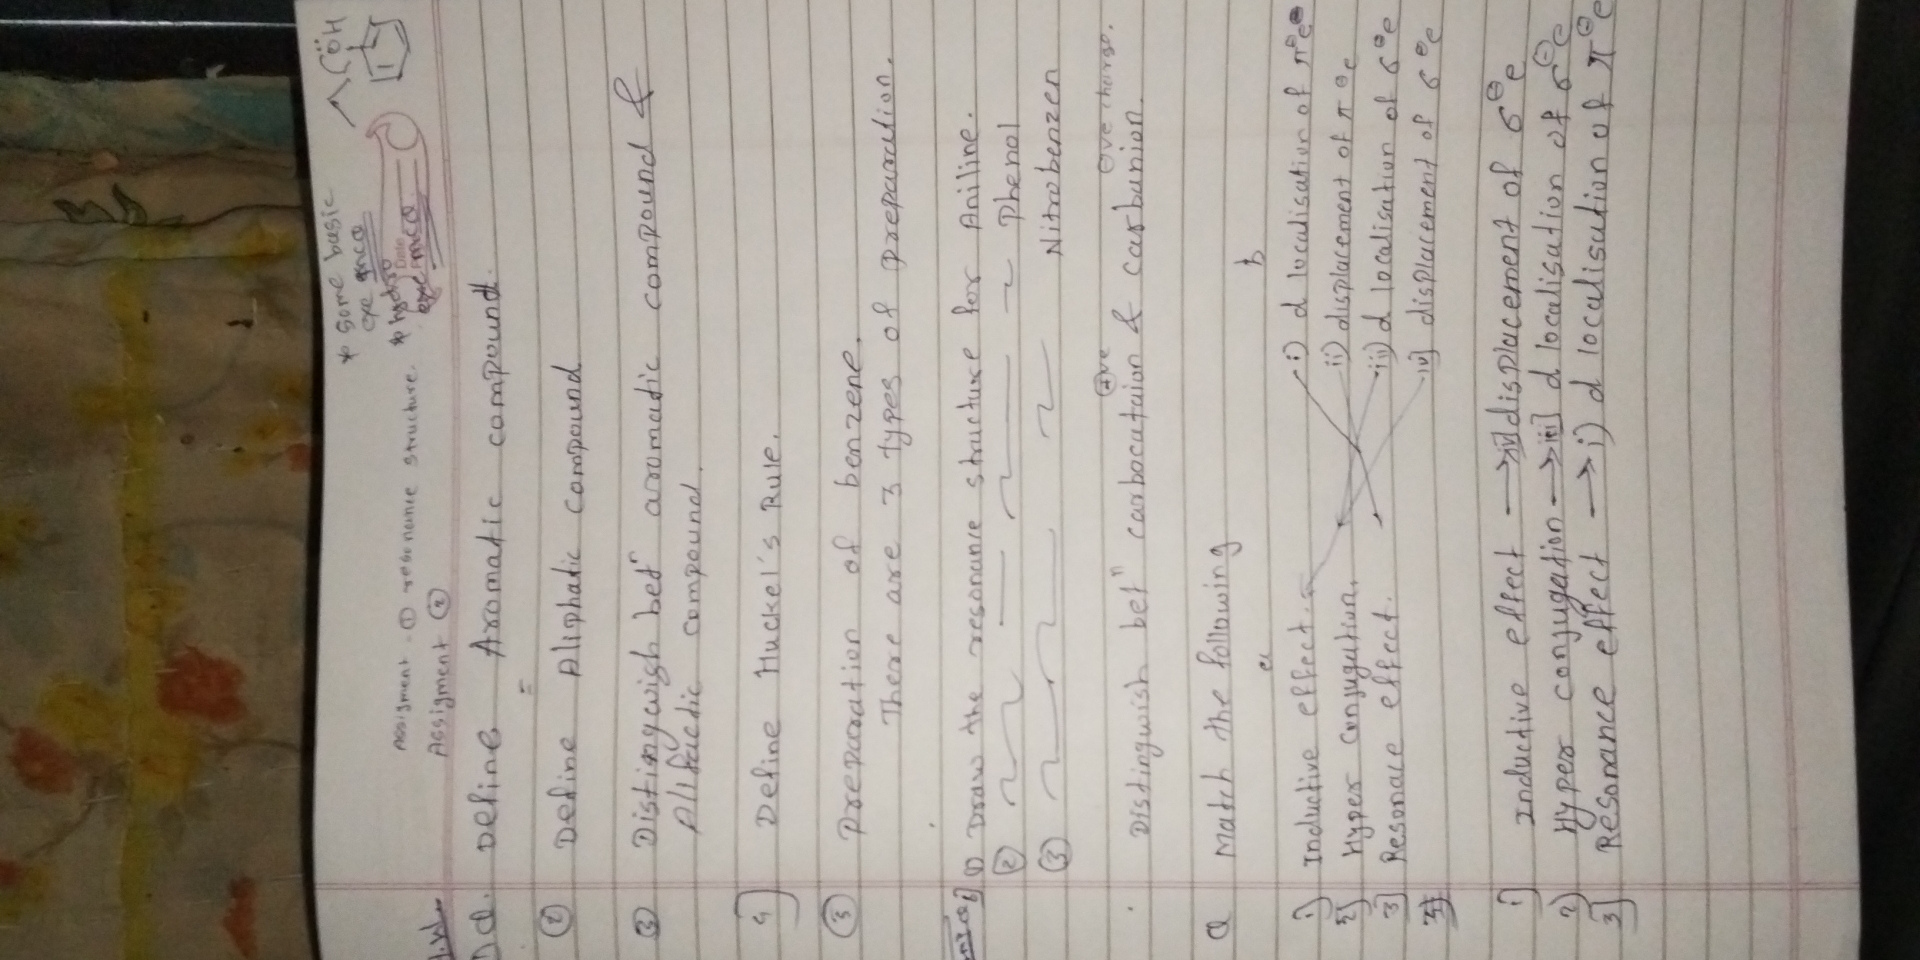 * some basic
exe
COH
Assigment - ① resonanse structure.
* hydro
Assigment ②
H.W.
Define Aromatic compound.
② Define Aliphatic compound
③ Distingwish betⁿ aromatic compound &
Alifactic compound.
4] Define Huckel's Rule.
⑤ Preparation of benzene.
There are 3 types of preparation.
1) Draw the resonance structure for Aniline.
② 〃 〃 〃 〃 Phenol
③ 〃 〃 〃 〃 Nitrobenzen
⊕ve ⊖ve charge.
. Distingwish betⁿ carbocation & carbanion.
Q Match the following
a b
1) Inductive effect. i) d localisation of π ⊖e
2] Hyper conjugation. ii) displacement of π ⊖e
3] Resonace effect. iii) d localisation of σ ⊖e
iv] displacement of σ ⊖e
1] Inductive effect → iv] displacement of σ ⊖e
2) Hyper conjugation → iii] d localisation of σ ⊖e
3] Resonance effect → i) d localisation of π ⊖e